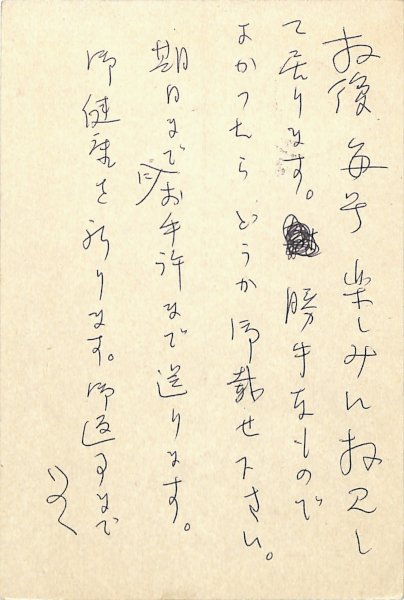 お後毎号楽しみにお見し
て居ります。勝手なもので
よかったらどうか御載せ下さい。
期日までにお手許まで送ります。
御健康を祈ります。御返事まで